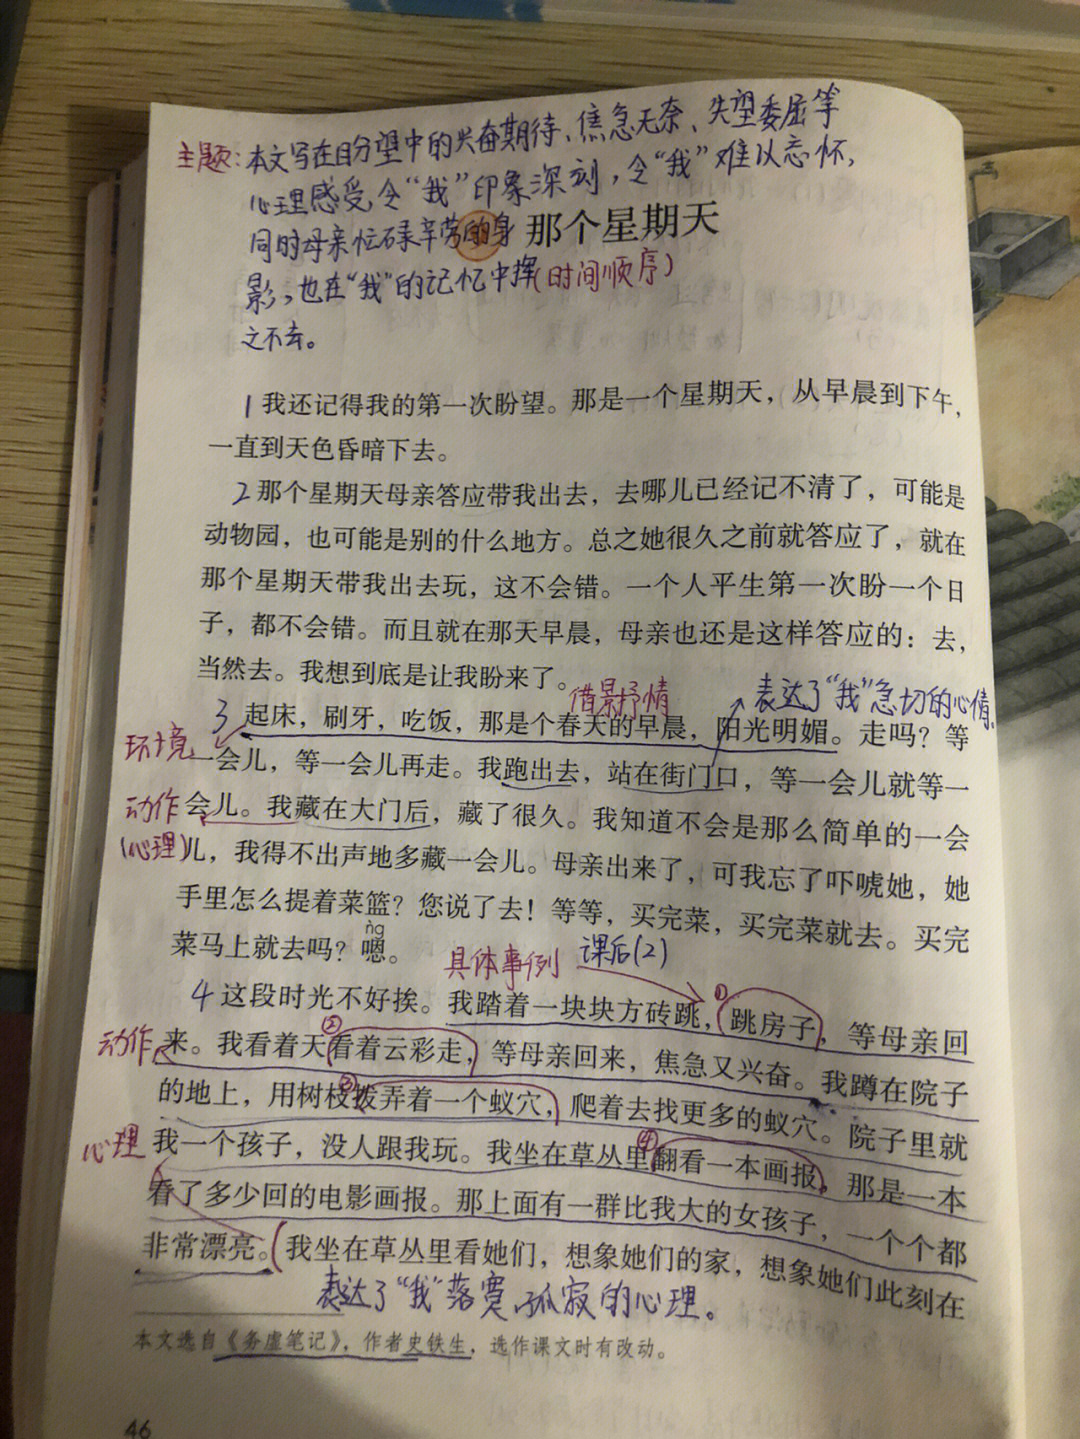 主题:本文写在盼望中的兴奋期待、焦急无奈、失望委屈等
心理感受,令“我”印象深刻,令“我”难以忘怀,
同时母亲忙碌辛劳的身
影,也在“我”的记忆中挥
之不去。
那个星期天
(时间顺序)
1我还记得我的第一次盼望。那是一个星期天,从早晨到下午,
一直到天色昏暗下去。
2那个星期天母亲答应带我出去,去哪儿已经记不清了,可能是
动物园,也可能是别的什么地方。总之她很久之前就答应了,就在
那个星期天带我出去玩,这不会错。一个人平生第一次盼一个日
子,都不会错。而且就在那天早晨,母亲也还是这样答应的:去,
当然去。我想到底是让我盼来了。
借景抒情
表达了“我”急切的心情
3起床,刷牙,吃饭,那是个春天的早晨,阳光明媚。走吗?等
环境
一会儿,等一会儿再走。我跑出去,站在街门口,等一会儿就等一
动作
会儿。我藏在大门后,藏了很久。我知道不会是那么简单的一会
(心理)
儿,我得不出声地多藏一会儿。母亲出来了,可我忘了吓唬她,她
手里怎么提着菜篮?您说了去!等等,买完菜,买完菜就去。买完
ňg
菜马上就去吗?嗯。
具体事例
课后(2)
4这段时光不好挨。我踏着一块块方砖跳,①跳房子,等母亲回
动作
来。我看着天②看着云彩走,等母亲回来,焦急又兴奋。我蹲在院子
的地上,用树枝③拨弄着一个蚁穴,爬着去找更多的蚁穴。院子里就
心理
我一个孩子,没人跟我玩。我坐在草丛里④翻看一本画报,那是一本
看了多少回的电影画报。那上面有一群比我大的女孩子,一个个都
非常漂亮。(我坐在草丛里看她们,想象她们的家,想象她们此刻在
表达了“我”落寞、孤寂的心理。
本文选自《务虚笔记》,作者史铁生,选作课文时有改动。
46